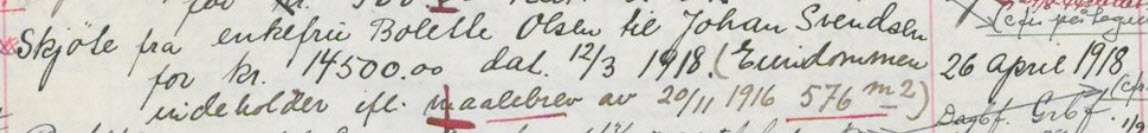 Skjöte fra enkefru Bolette Olsen til Johan Svendsen
for kr. 14500.00 dat. 12/3 1918. (Eiendommen 26 april 1918
indeholder ifl. maalebrev av 20/11 1916 576 m2)
Dagbf. Grbf.